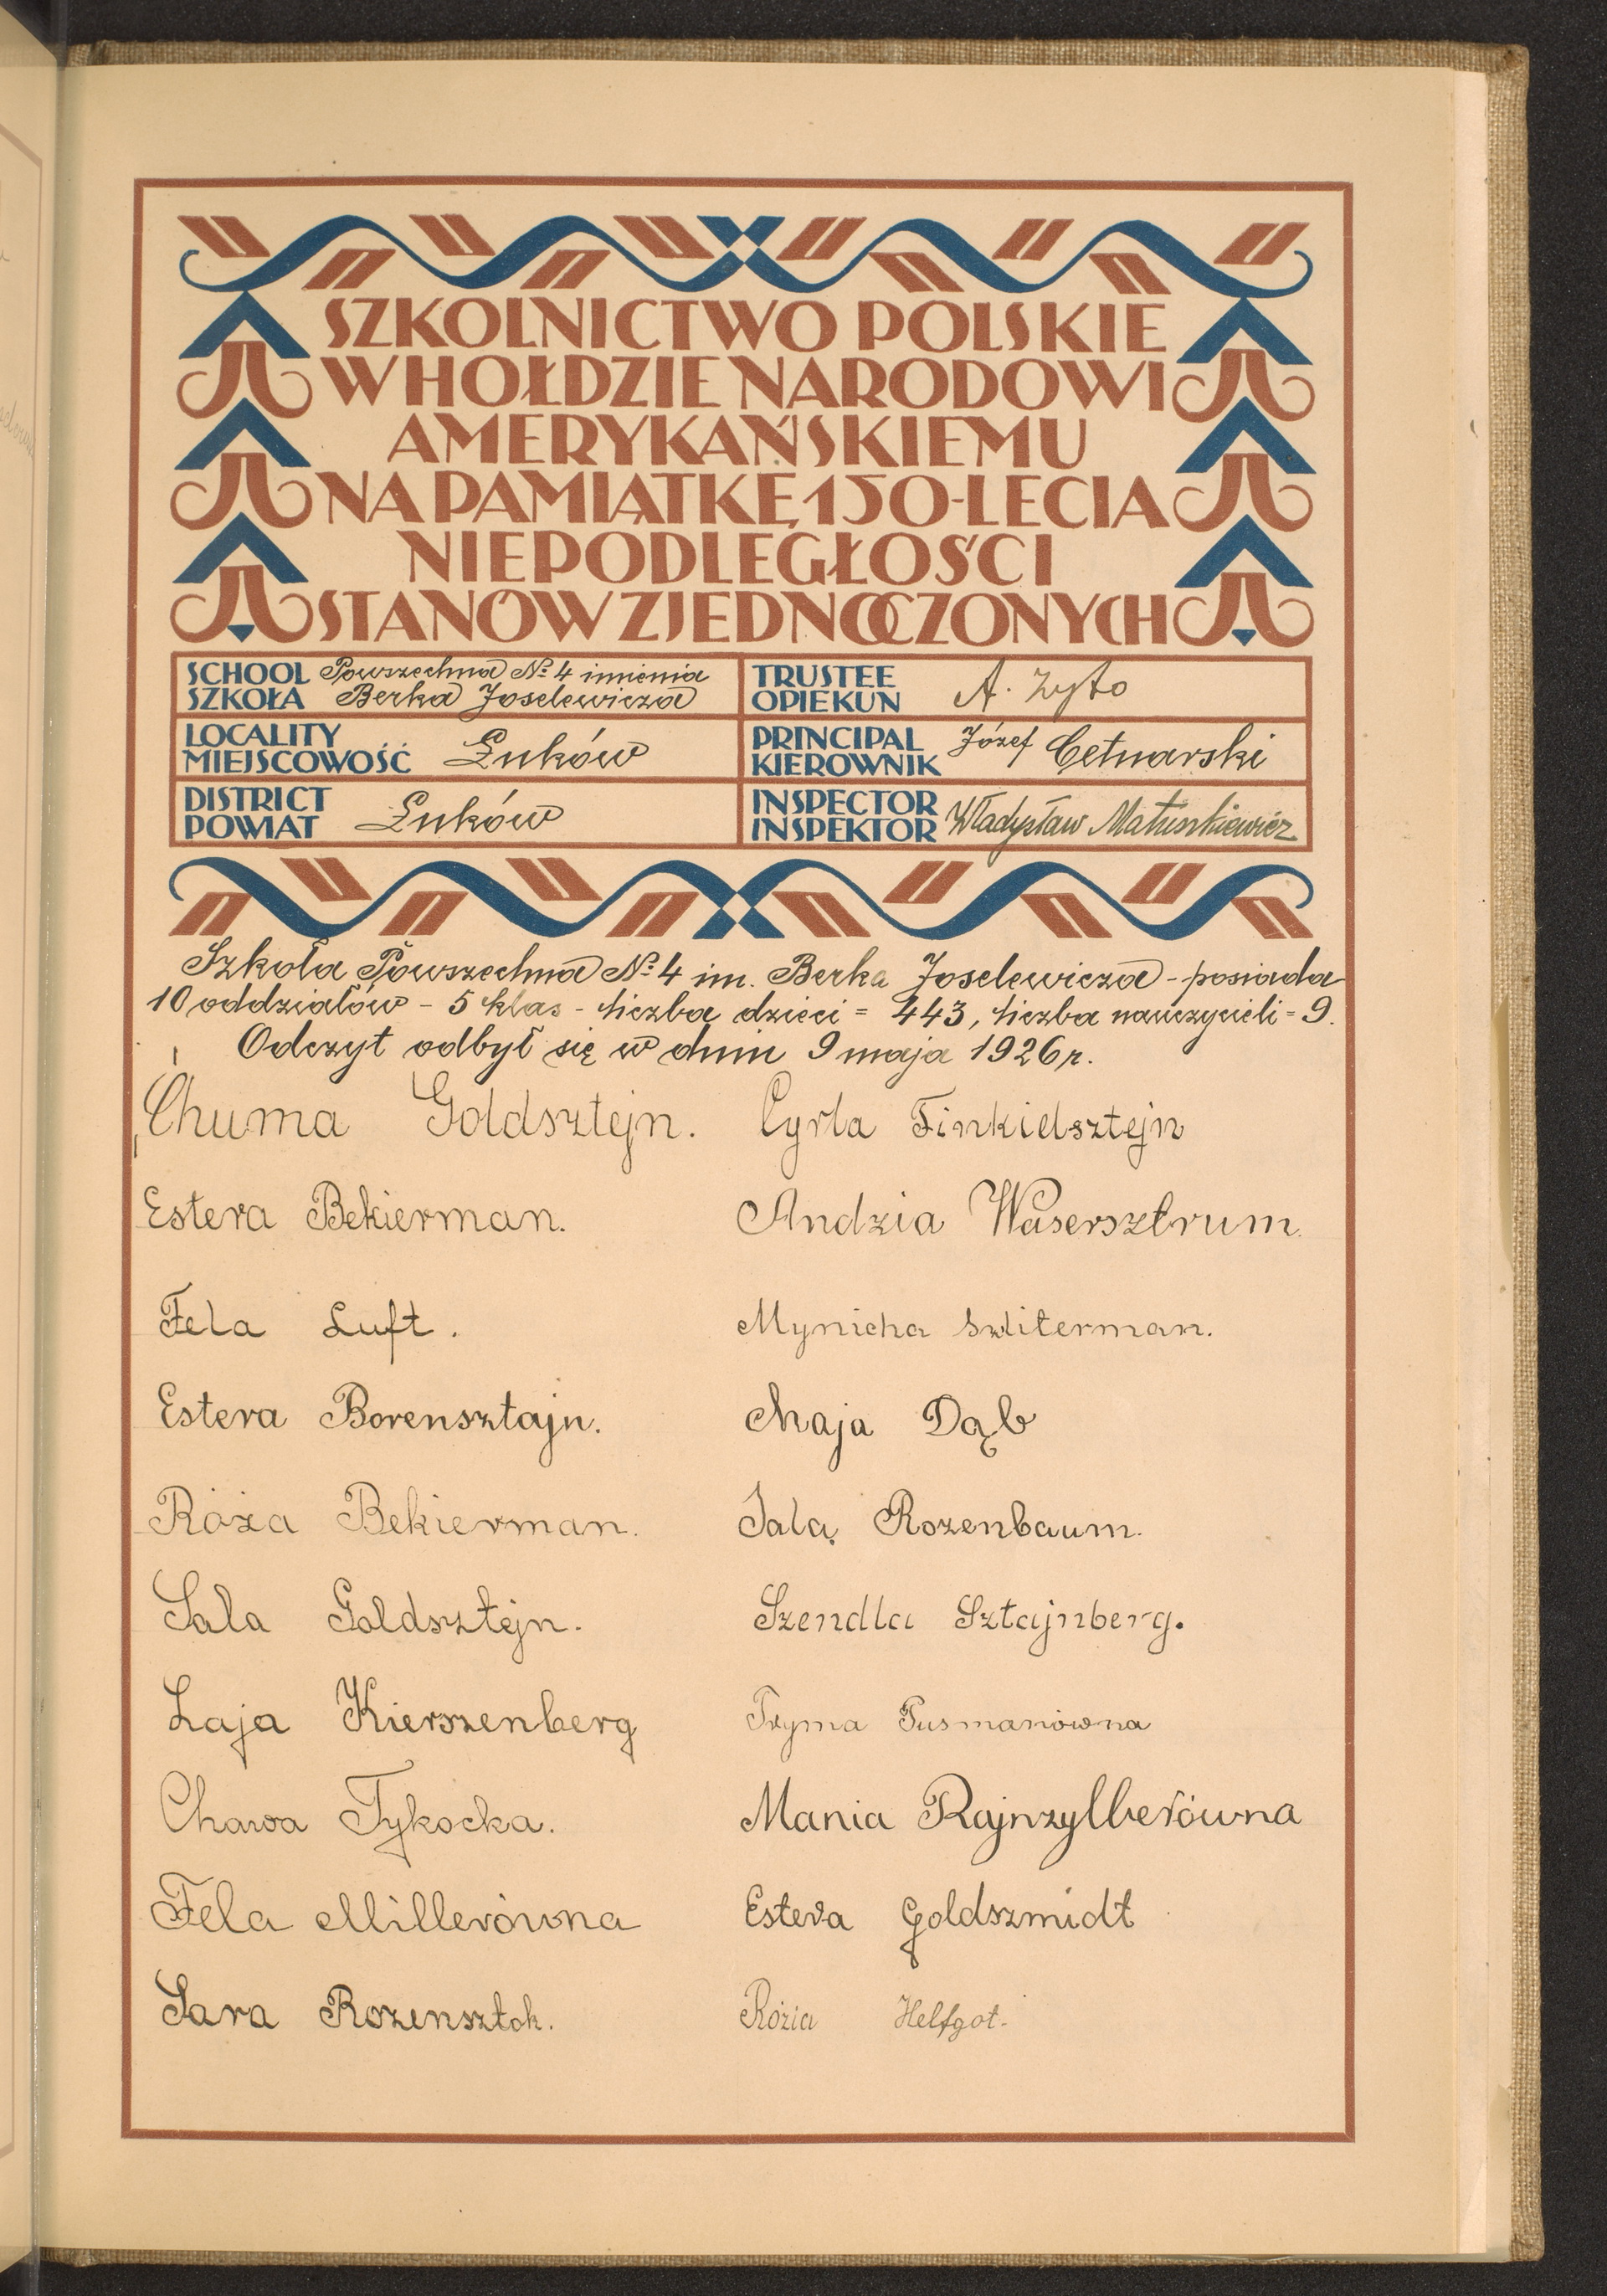 SZKOLNICTWO POLSKIE
W HOŁDZIE NARODOWI
AMERYKAŃSKIEMU
NA PAMIĄTKĘ 150-LECIA
NIEPODLEGŁOŚCI
STANÓW ZJEDNOCZONYCH
SCHOOL
SZKOŁA
Powszechna № 4 imienia
Berka Joselewicza
TRUSTEE
OPIEKUN
A. Zyto
LOCALITY
MIEJSCOWOŚĆ
Łuków
PRINCIPAL
KIEROWNIK
Józef Cetnarski
DISTRICT
POWIAT
Łuków
INSPECTOR
INSPEKTOR
Władysław Matuszkiewicz
Szkoła Powszechna № 4 im. Berka Joselewicza - posiada
10 oddziałów - 5 klas - liczba dzieci = 443, liczba nauczycieli = 9.
Odczyt odbył się w dniu 9 maja 1926 r.
Chuma Goldsztejn. Cyrla Finkielsztejn
Estera Bekierman. Andzia Wasersztrum
Fela Luft. Mynicha
Estera Borensztajn. Chaja Dąb
Róża Bekierman. Sala Rozenbaum.
Sala Goldsztejn. Szendla Sztajnberg.
Łaja Kierszenberg Frymа
Chawa Tykocka. Mania Rajnzylberówna
Fela Millerówna Estera Goldszmidt
Sara Rozensztok. Rózia Helfgot.